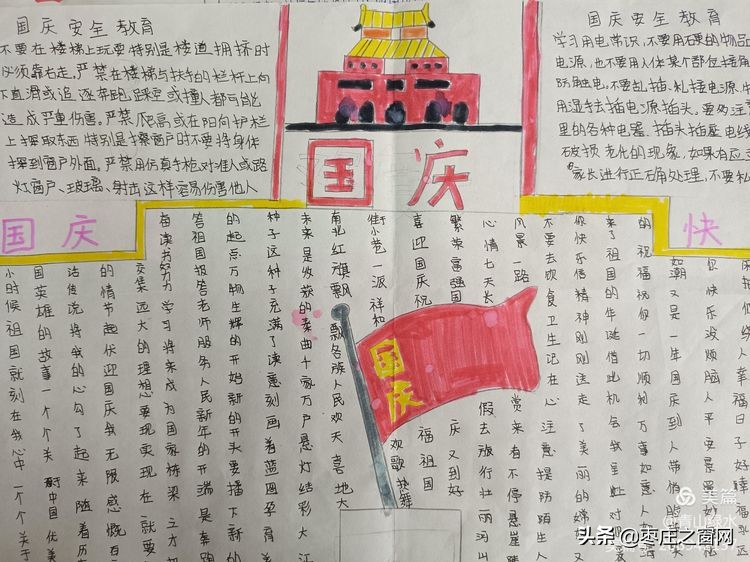 国庆安全教育
不要在楼梯上玩耍特别是楼道拥挤时
必须靠右走,严禁在楼梯与扶手的栏杆上向
下直滑或追逐奔跑,踩空或撞人都可能
造成严重伤害。严禁爬高或在阳台护栏
上探取东西特别是擦窗户时不要将身体
探到窗户外面,严禁用仿真手枪对准人或路
灯窗户、玻璃、射击这样容易伤害他人
国庆安全教育
学习用电常识,不要用硬的物品
电源,也不要用人体某个部位接触
防触电。不要乱插、私接电源,
用湿手去插电源插头。要
里的各种电器、插头插座电线
破损老化的现象,如果有应
家长进行正确处理,不要私
国庆
国庆
快
国庆
街小巷一派祥和
喜迎国庆祝
福祖国
繁荣富强国
庆又到好
心情七天长
假去旅行壮丽河山
风景一路
赏来有不停悬崖
不要去饮食卫生记在心
注意提防陌生人
你快乐信精神刚刚送走了美丽的嫦娥又
来了祖国的生诞借此机会我
的祝福祝你一切顺利万事如意人
如潮又是一年国庆到人带俏
南北红旗飘飘各族人民欢天喜地大
欢歌热舞
未来是收获的季曲十家万户悬灯结彩大江
种子这种子充满了诗意刻画着蓝图孕育美
的起点万物生辉的开始新的开头要播下新的
答祖国报答老师服务人民新年的开端是奔跑
奋读书努力学习将来成为国家栋梁
交集远大的理想要现实现在就要
的情节起伏迎国庆我无限感慨
活传说将我的心勾了起来随着历
国英雄的故事一个个关于中国优美
小时候祖国就刻在我心中一个个关于
美篇
@青山绿水
头条@枣庄之窗网